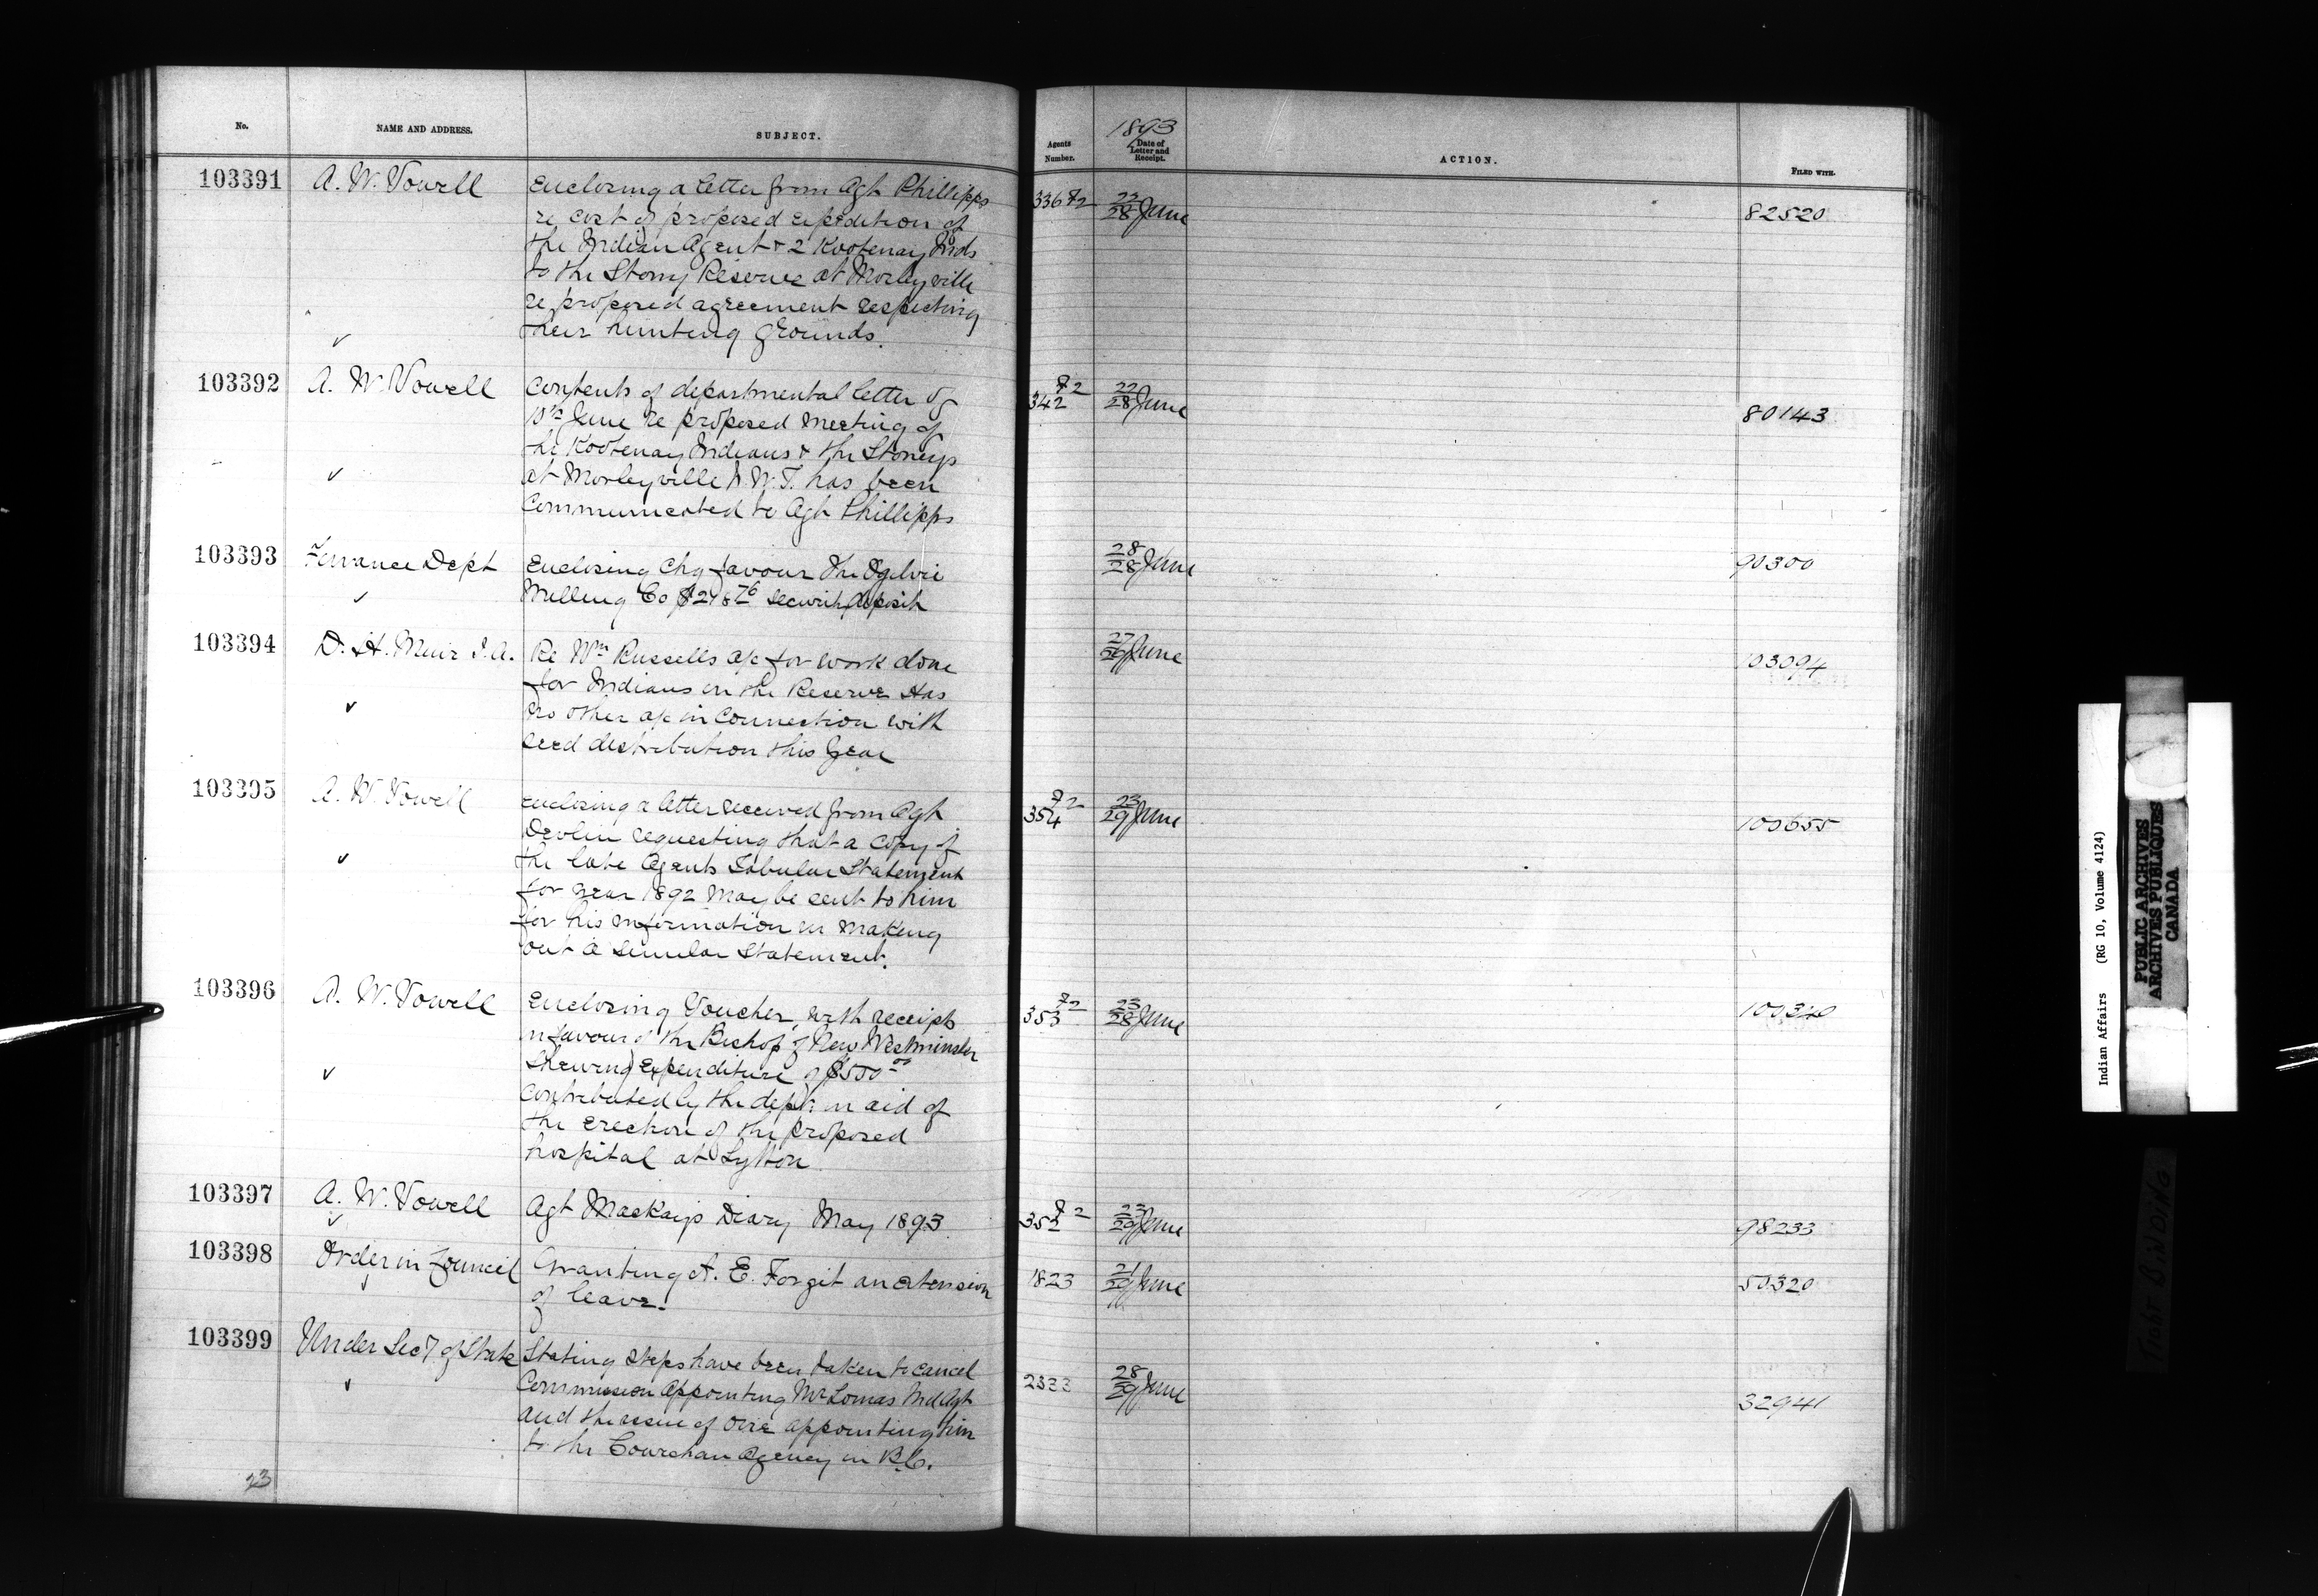 No.
NAME AND ADDRESS.
SUBJECT.
Agents Number.
1893
Date of Letter and Receipt.
ACTION.
FILED WITH.
103391
A. W. Vowell
Enclosing a letter from Agt Phillipps
re cost of proposed expedition of
the Indian Agent + 2 Kootenay Inds
to the Stony Reserve at Morleyville
re proposed agreement respecting
their hunting grounds.
336 F2
22/28 June
82520
103392
A. W. Vowell
Contents of departmental letter of
June re proposed meeting of
the Kootenay Indians + the Stoneys
at Morleyville N.W.T. has been
Communicated to Agt Phillipps
F2
342
22/28 June
80143
103393
Finance Dept
Enclosing Chq favour The Ogilvie
Milling Co security deposit
28/28 June
90300
103394
D. H. Muir I.A.
Re Wm Russells a/c for work done
for Indians on the Reserve Has
no other a/c in Connection with
seed distribution this year
27/29 June
103094
103395
A. W. Vowell
Enclosing a letter received from Agt
Devlin requesting that a copy of
the late Agents Tabular Statement
for year 1892 may be sent to him
for his information in making
out a similar Statement.
F2
354
23/29 June
100655
103396
A. W. Vowell
Enclosing Voucher, with receipts
in favour of the Bishop of New Westminster
Shewing Expenditure of $500 00
contributed by the dept in aid of
the erection of the proposed
hospital at Lytton
F2
353
23/28 June
100340
103397
A. W. Vowell
Agt Mackays Diary May 1893
F2
352
23/29 June
98233
103398
Order in Council
Granting A. E. Forget an extension
of leave.
1823
21/29 June
50320
103399
Under Secy of State
Stating steps have been taken to cancel
Commission Appointing Mr Lomas Ind Agt
and the issue of one appointing him
to the Cowichan Agency in B.C.
2333
28/29 June
32941
23
Indian Affairs (RG 10, Volume 4124)
PUBLIC ARCHIVES
ARCHIVES PUBLIQUES
CANADA
TIGHT BINDING